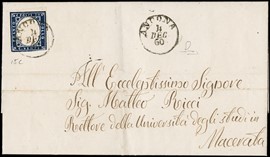 ANCONA
14
DEC
60
All' Eccelentissimo Signore
Sig. Matteo Ricci
Rettore della Università degli studi in
Macerata